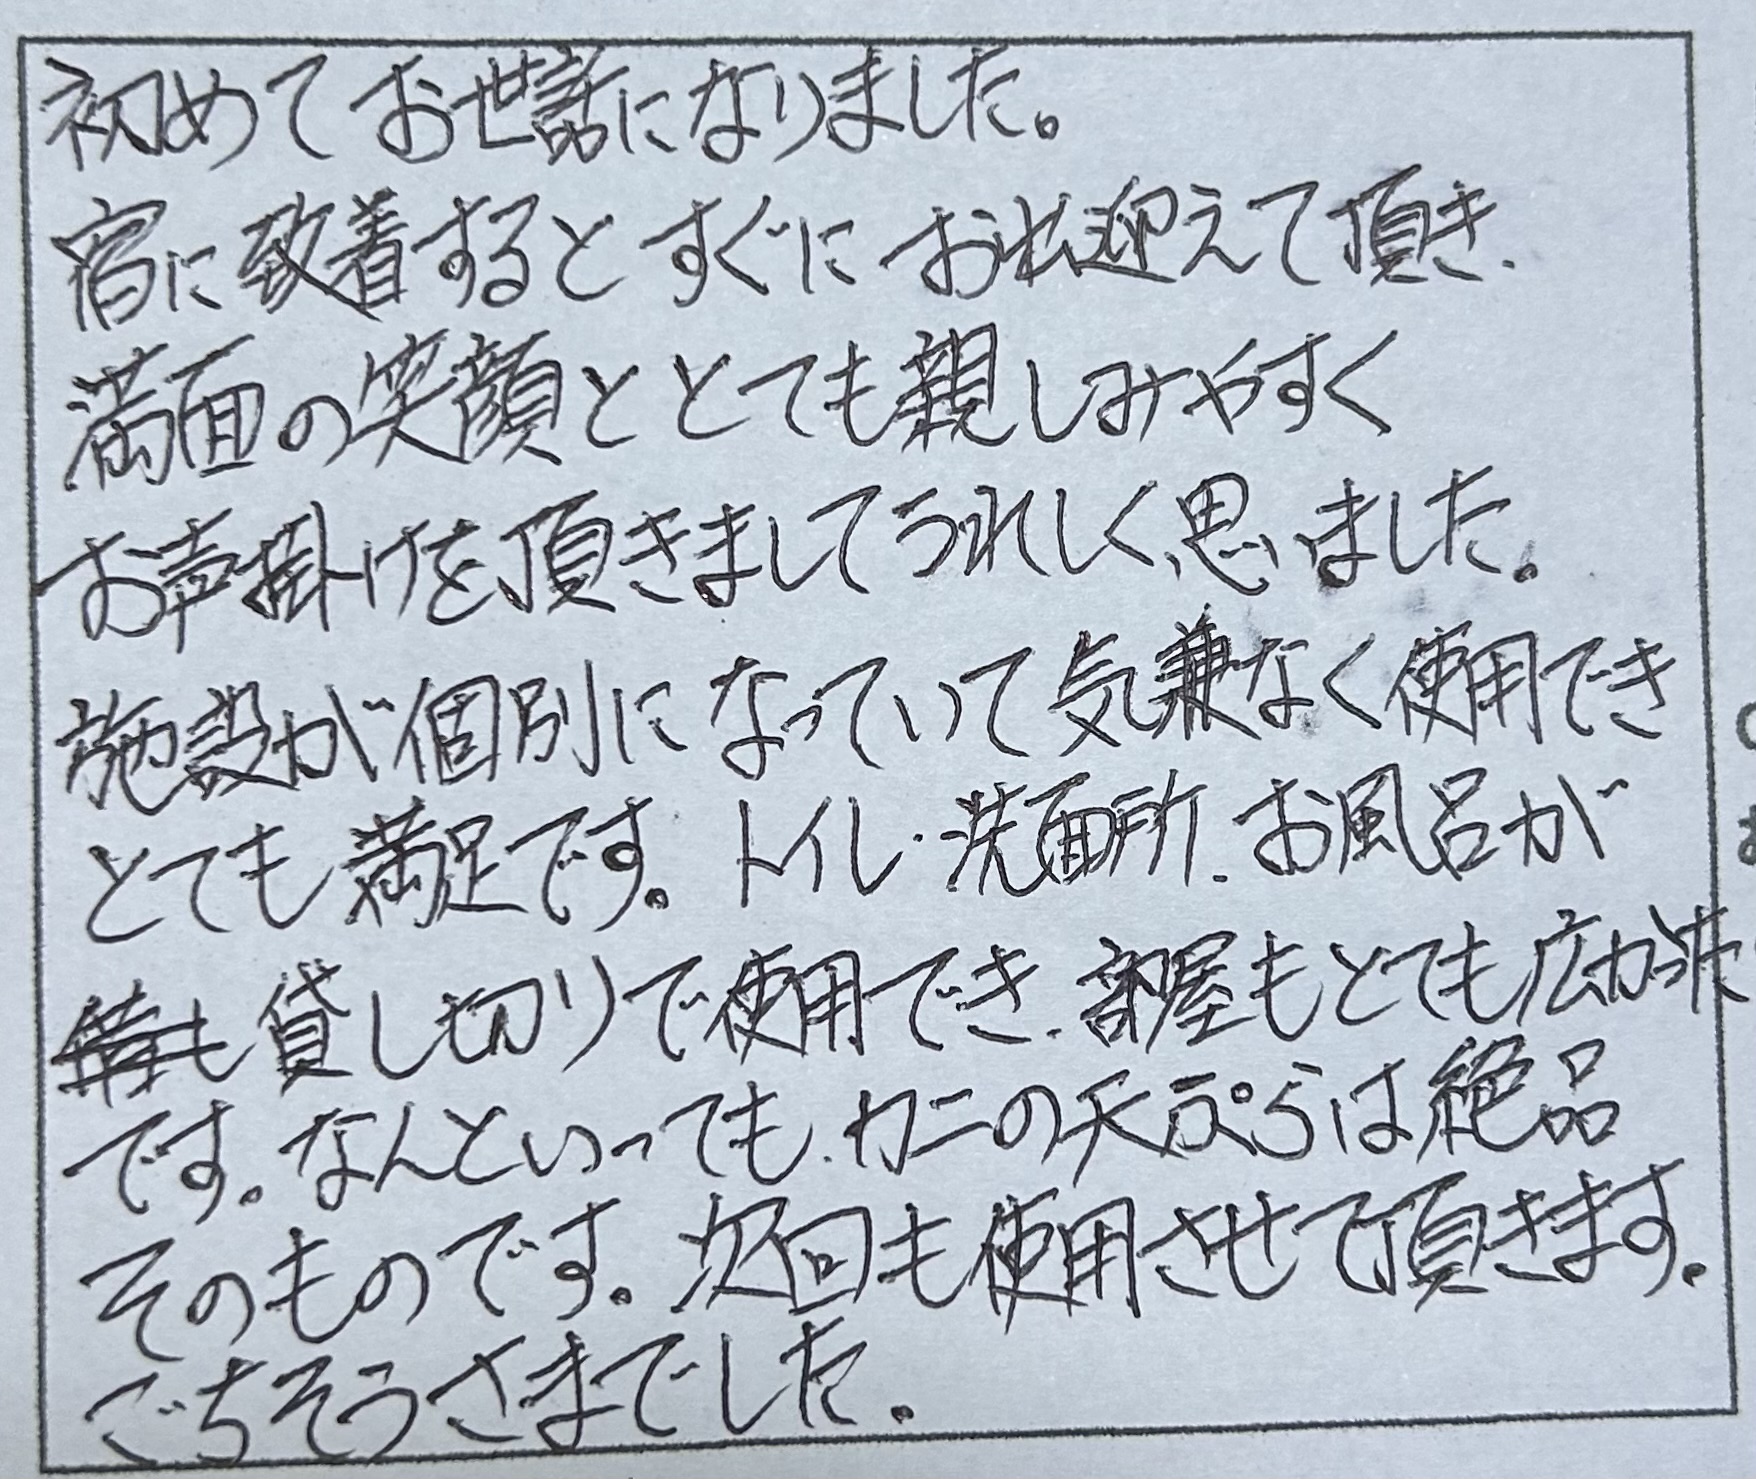 初めてお世話になりました。
宿に致着するとすぐにお出迎えて頂き、
満面の笑顔ととても親しみやすく
お声掛けを頂きましてうれしく思いました。
施設が個別になっていて気兼なく使用でき
とても満足です。トイレ・洗面所、お風呂が
貸し切りで使用でき、部屋もとても広かった
です。なんといっても、カニの天ぷらは絶品
そのものです。次回も使用させて頂きます。
ごちそうさまでした。